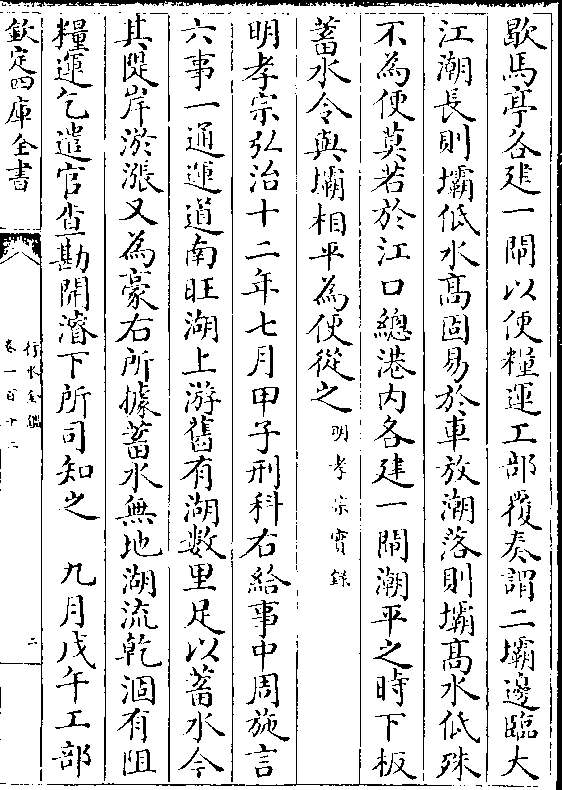 歇馬亭各建一閘以便糧運工部覆奏謂二壩邊臨大
江潮長則壩低水髙固易於車放潮落則壩髙水低殊
不為便莫若於江口總港内各建一閘潮平之時下板
蓄水令與壩相平為便從之明孝宗實錄
明孝宗弘治十二年七月甲子刑科右給事中周旋言
六事一通運道南旺湖上游舊有湖數里足以蓄水今
其隄岸淤漲又為豪右所據蓄水無地湖流乾涸有阻
糧運乞遣官查勘開濬下所司知之　九月戊午工部
欽定四庫全書
行水金鑑
卷一百十二
二